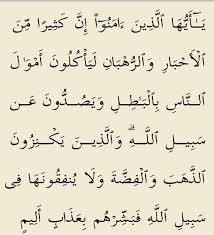 يَـٰٓأَيُّهَا ٱلَّذِينَ ءَامَنُوٓا۟ إِنَّ كَثِيرًا مِّنَ
ٱلْأَحْبَارِ وَٱلرُّهْبَانِ لَيَأْكُلُونَ أَمْوَٰلَ
ٱلنَّاسِ بِٱلْبَـٰطِلِ وَيَصُدُّونَ عَن
سَبِيلِ ٱللَّهِ ۗ وَٱلَّذِينَ يَكْنِزُونَ
ٱلذَّهَبَ وَٱلْفِضَّةَ وَلَا يُنفِقُونَهَا فِى
سَبِيلِ ٱللَّهِ فَبَشِّرْهُم بِعَذَابٍ أَلِيمٍ